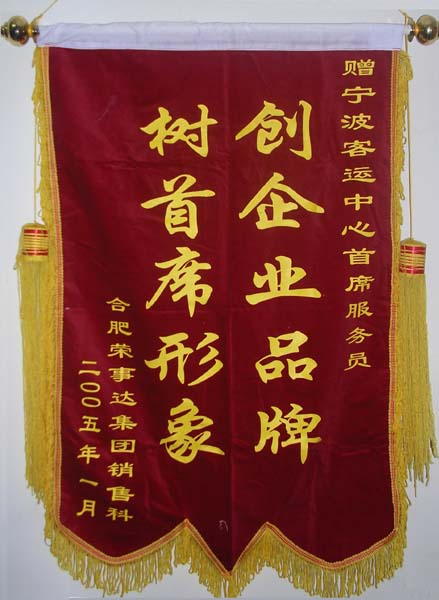 赠宁波客运中心首席服务员
创企业品牌
树首席形象
合肥荣事达集团销售科
二００五年一月